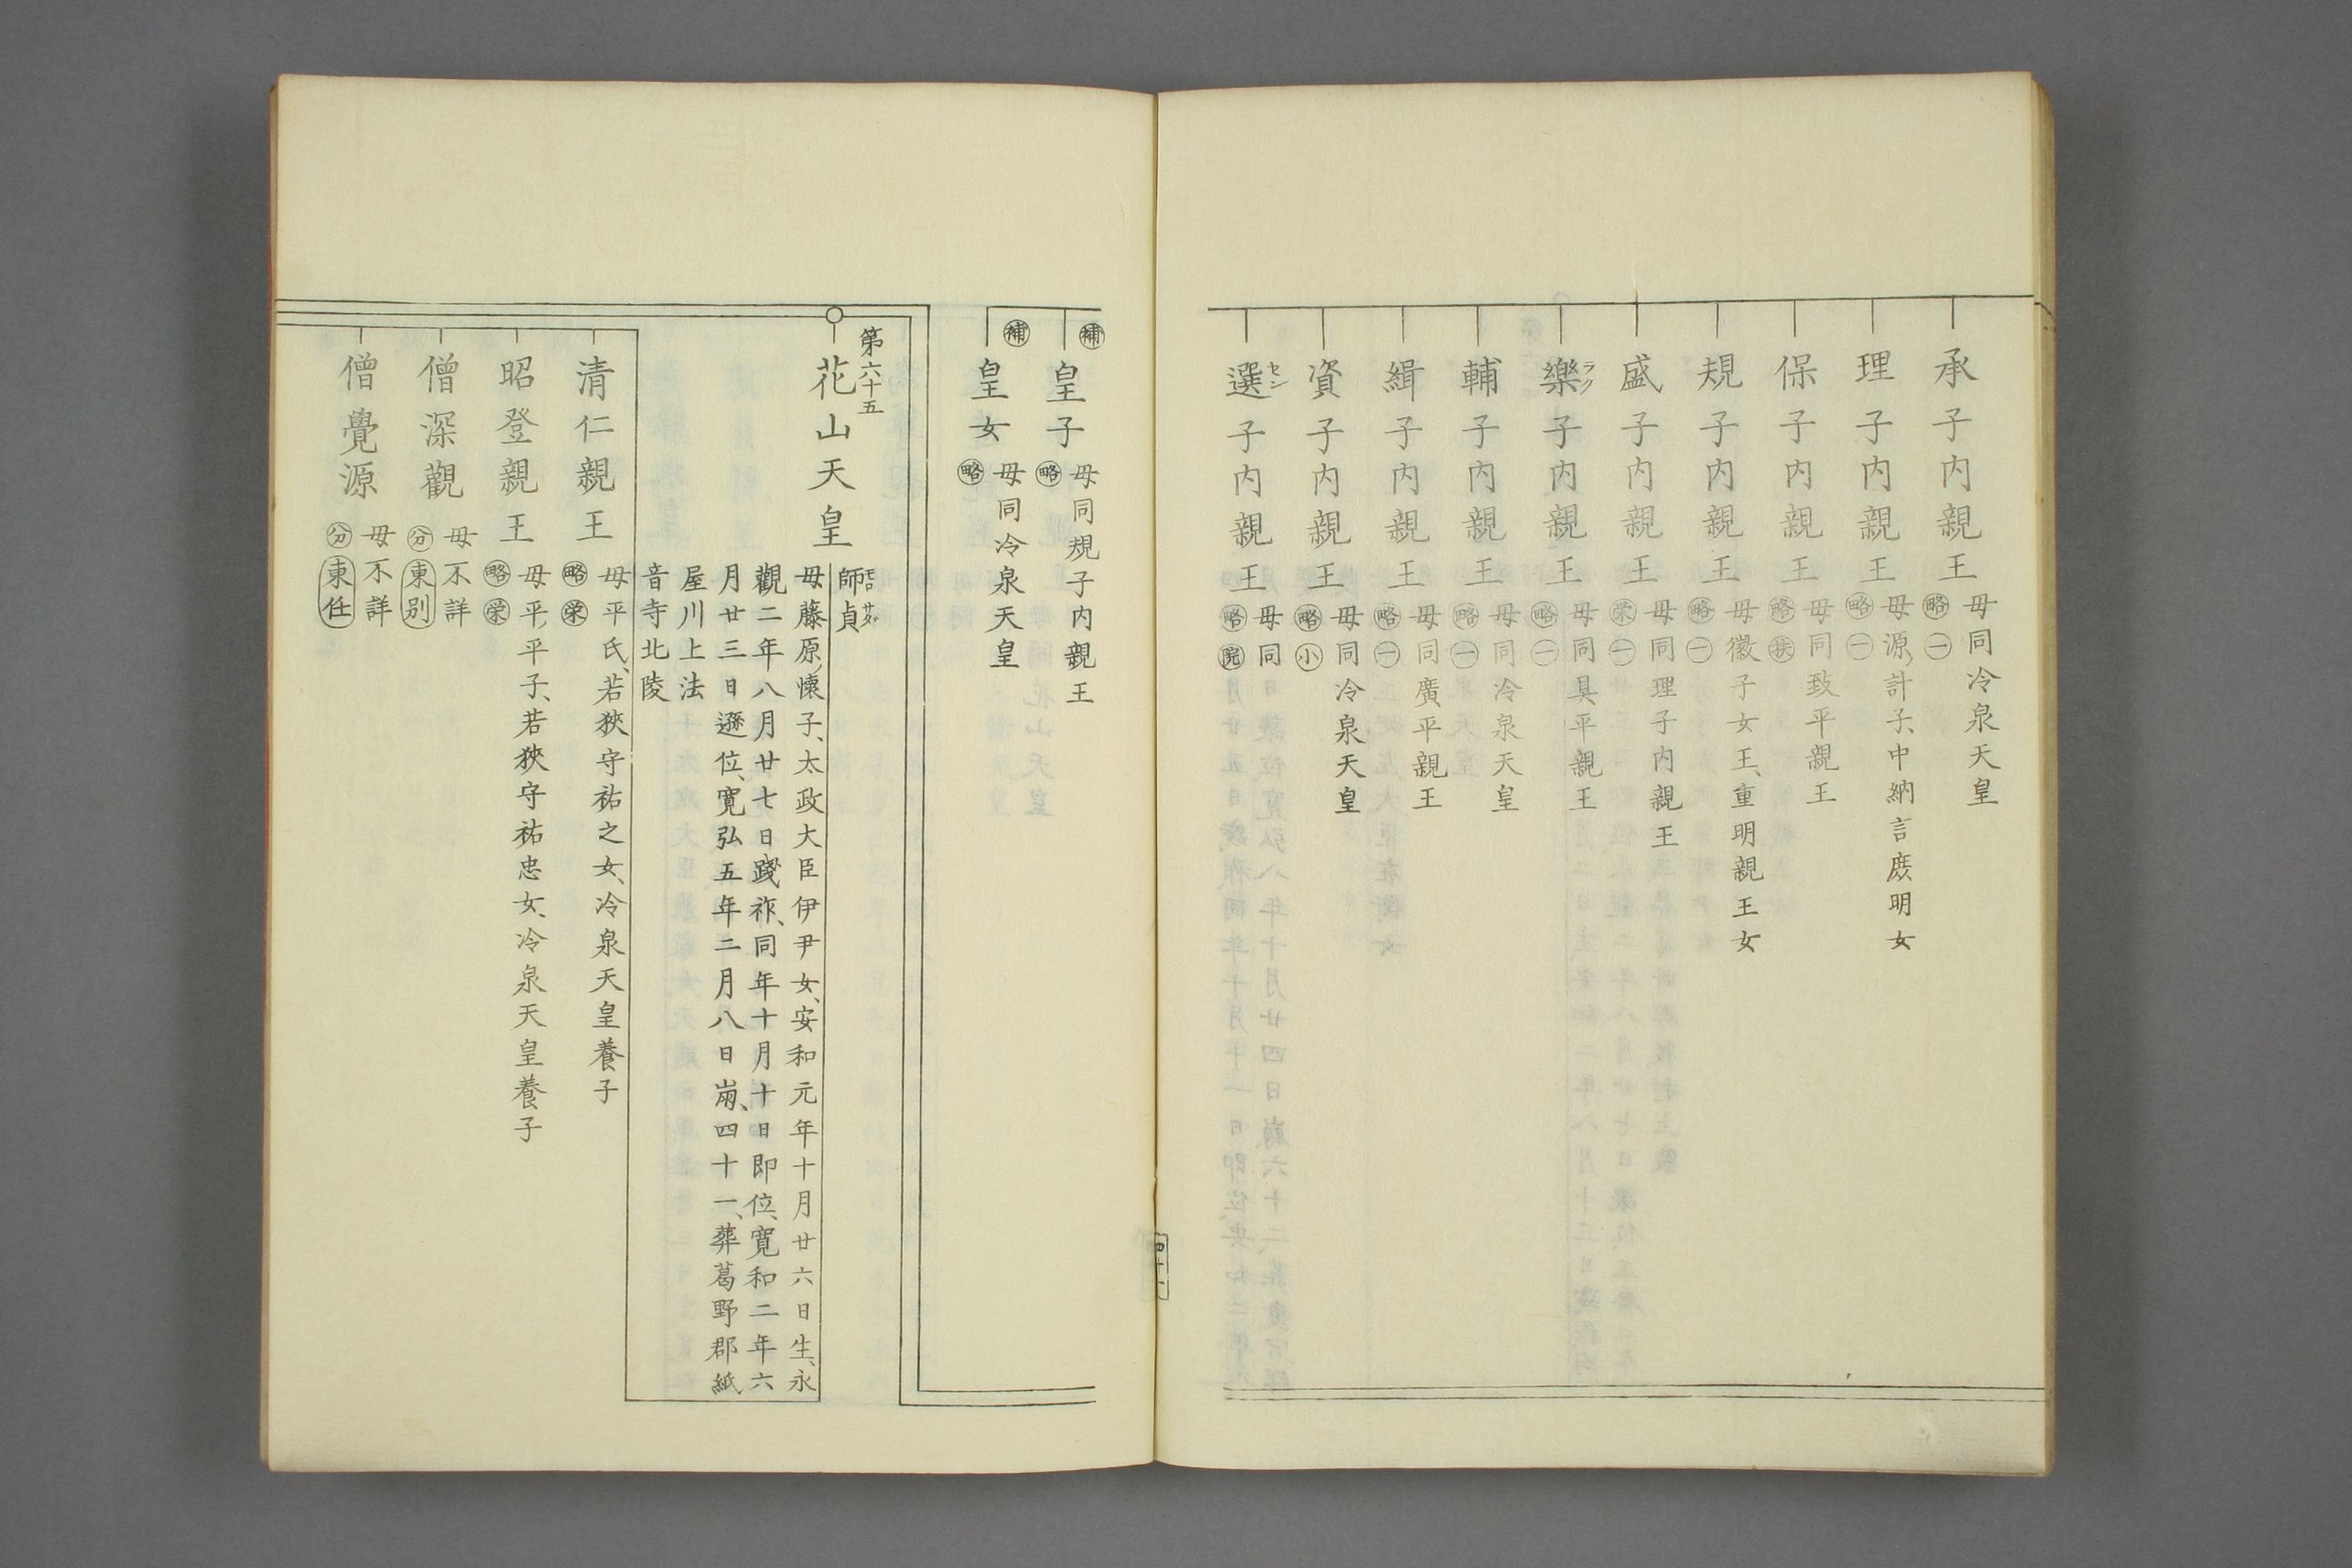 承子内親王
母同冷泉天皇
略 一
理子内親王
母源計子、中納言庶明女
略 一
保子内親王
母同致平親王
略 扶
規子内親王
母徽子女王、重明親王女
略 一
盛子内親王
母同理子内親王
栄 一
樂子内親王
ラク
母同具平親王
略 一
輔子内親王
母同冷泉天皇
略 一
緝子内親王
母同廣平親王
略 一
資子内親王
母同冷泉天皇
略 小
選子内親王
セン
母同
略 院
四十一
補
皇子
母同規子内親王
略
補
皇女
母同冷泉天皇
略
第六十五
花山天皇
師貞
モロサダ
母藤原ノ懐子、太政大臣伊尹女、安和元年十月廿六日生、永
觀二年八月廿七日踐祚、同年十月十日即位、寛和二年六
月廿三日遜位、寛弘五年二月八日崩、四十一、葬葛野郡紙
屋川上法
音寺北陵
清仁親王
母平氏、若狹守祐之女、冷泉天皇養子
略 栄
昭登親王
母平平子、若狹守祐忠女、冷泉天皇養子
略 栄
僧深觀
母不詳
分 東別
僧覺源
母不詳
分 東任